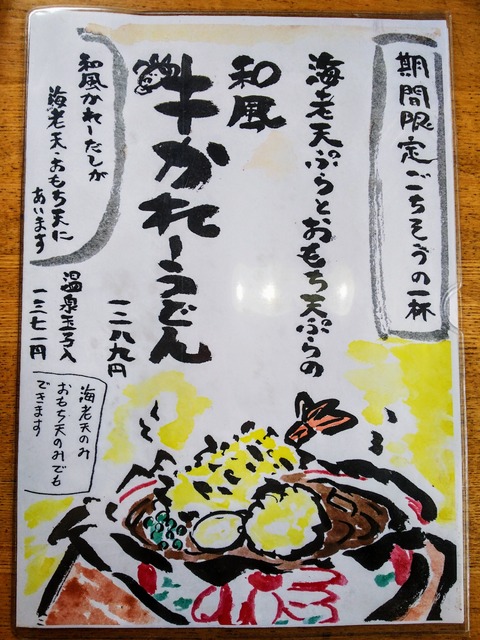 期間限定ごちそうの一杯
海老天ぷらとおもち天ぷらの
和風
牛かれーうどん
一二八九円
和風かれーだしが
海老天、おもち天に
あいます
温泉玉子入
一三七一円
海老天のみ
おもち天のみでも
できます